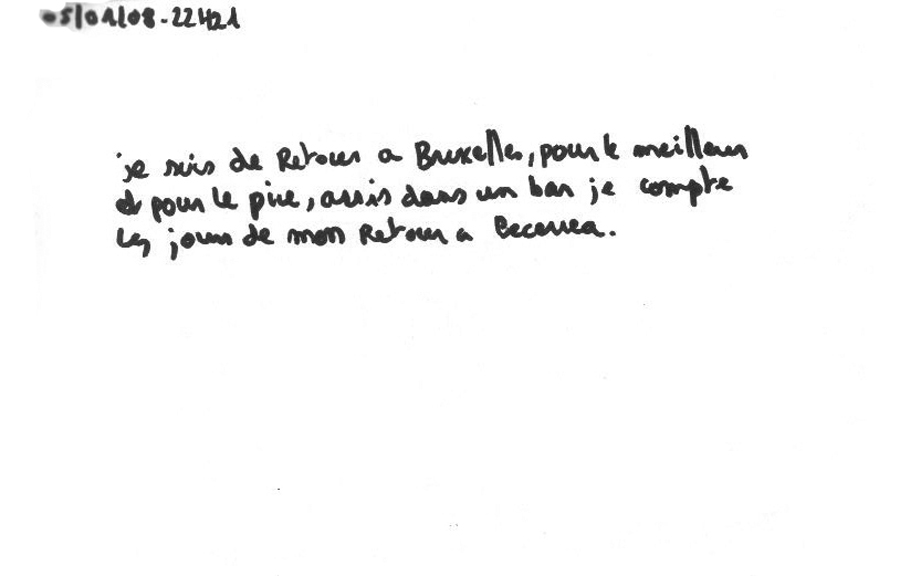 05/01/08-22H21
je suis de Retour a Bruxelles, pour le meilleur
et pour le pire, assis dans un bar je compte
les jours de mon Retour a